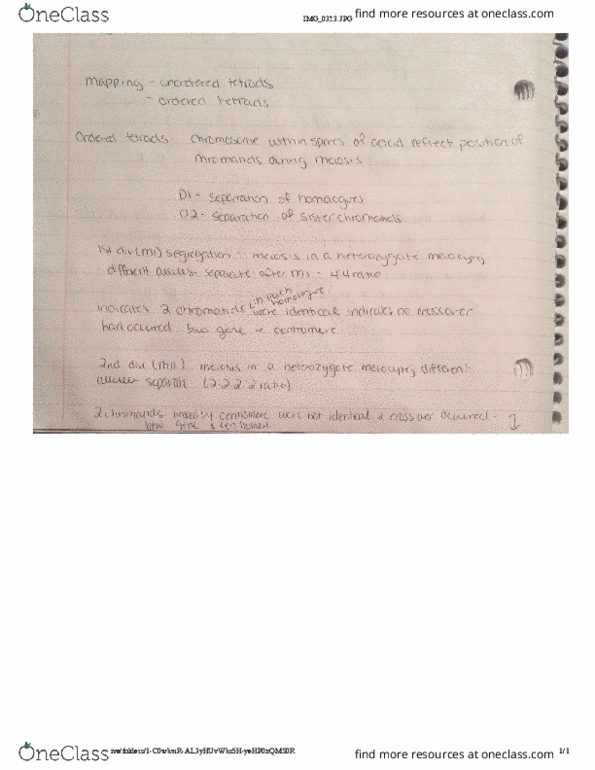 OneClass
IMG_0323.JPG
find more resources at oneclass.com
mapping - unordered tetrads
- ordered tetrads
Ordered tetrads chromosome within spores of reflect position of
during meiosis
D1 - separation of
D2 - separation of sister chromatids
1st div (M1) segregation - meiosis in a heterozygote meiocyte,
different separate after M1 - 4:4 ratio
in each
indicates 2 were identical indicates no crossover
had occurred gene centromere
2nd div (MII) meiosis in a heterozygote meiocyte, different
separate (2:2:2:2 ratio)
2 by centromere were not identical & crossover occurred -
gene &
1
OneClass
find more resources at oneclass.com
1/1